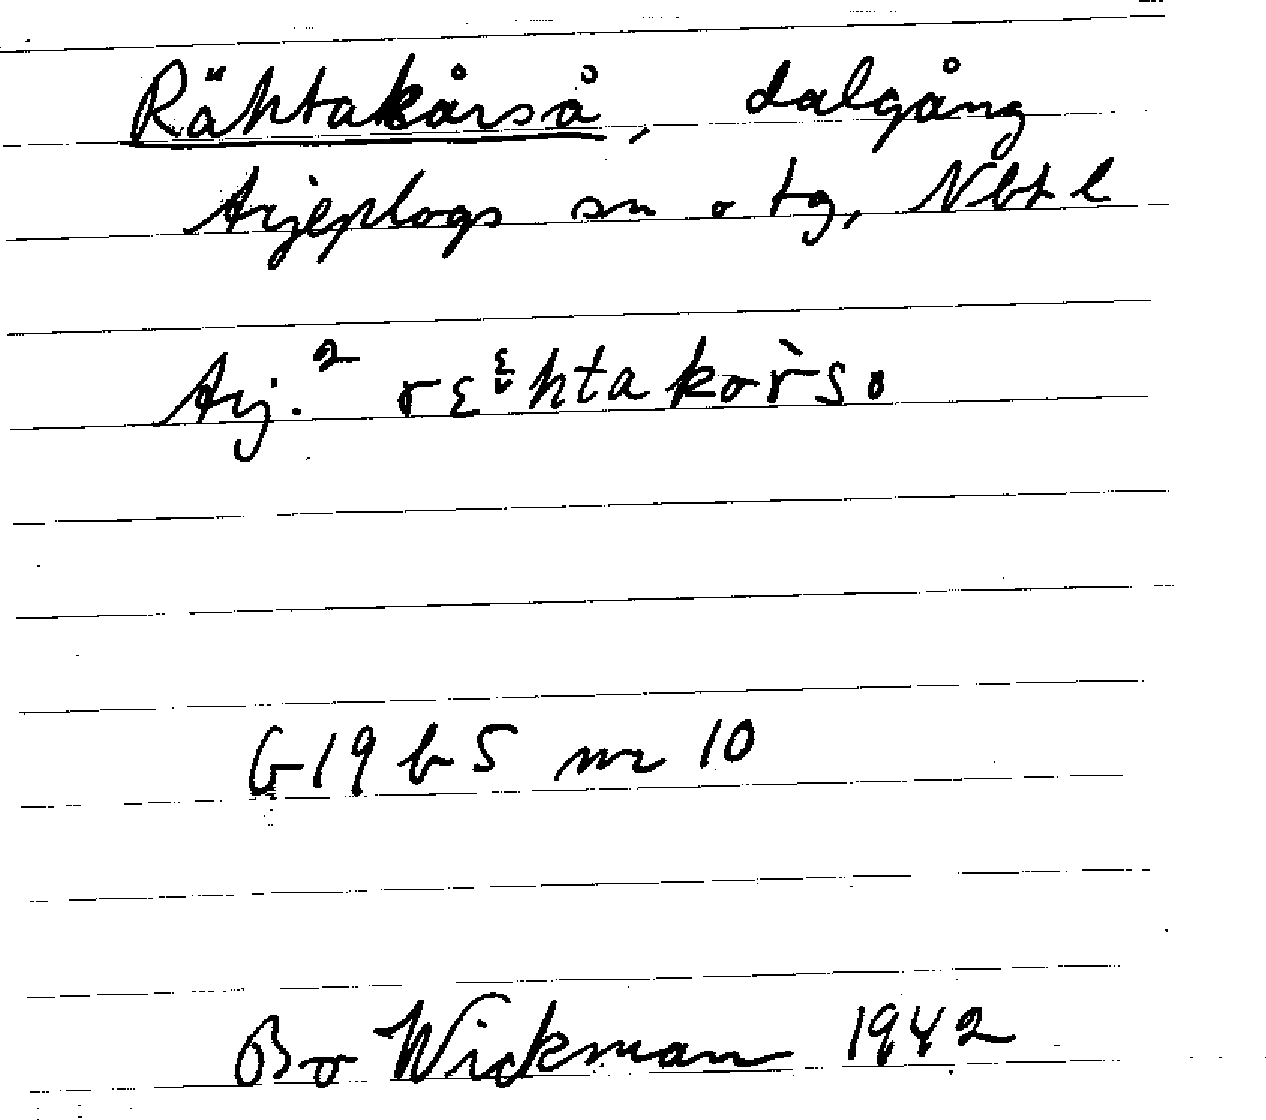 Rähtakårså, dalgång
Arjeplogs sn o tg, Nbt l
Arj.² rɛᵋ̮htakor̀so
G19 b5 nr 10
Bo Wickman 1942